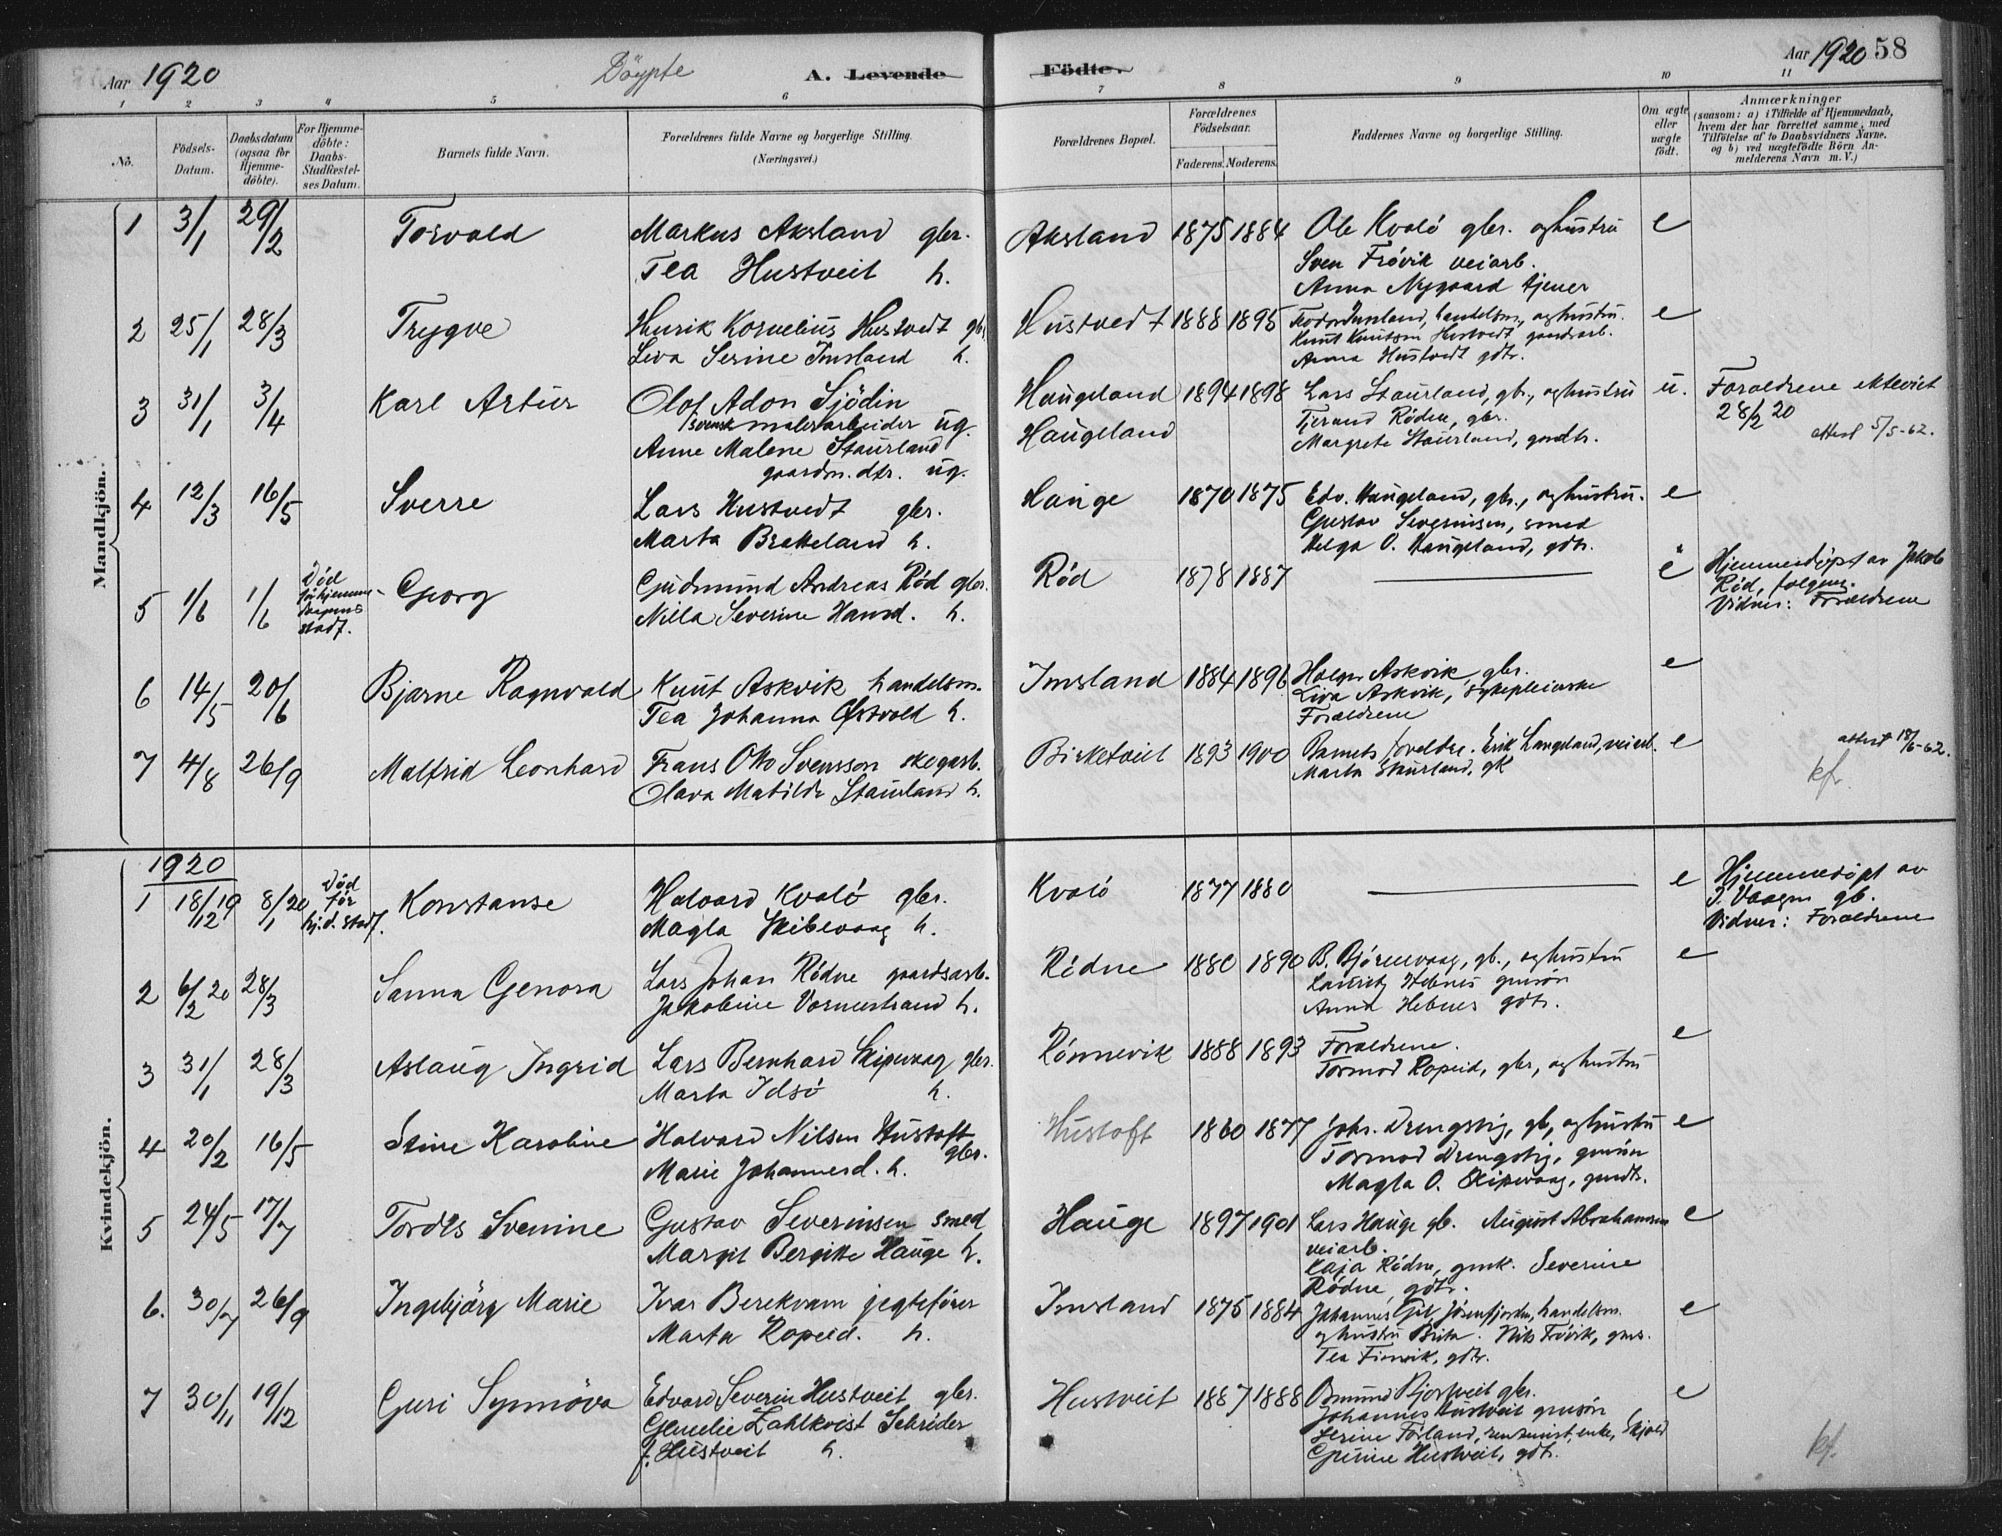 Aar 1920
Döypte
A. Levende
Födte.
Aar 1920
58
1 2 3 4 5 6 7 8 9 10 11
No.
Födsels-Datum.
Daabsdatum (ogsaa for Hjemme-döbte).
For Hjemme-döbte: Daabs-Stadfæstel-ses Datum.
Barnets fulde Navn.
Forældrenes fulde Navne og borgerlige Stilling.
(Næringsvei.)
Forældrenes Bopæl.
Forældrenes Födselsaar.
Faderens. Moderens.
Faddernes Navne og borgerlige Stilling.
Om ægte eller uægte födt.
Anmærkninger
(saasom: a) i Tilfælde af Hjemmedaab,
hvem der har forrettet samme, med
Tilföielse af to Daabsvidners Navne,
og b) ved uægtefödte Börn An-
melderens Navn m. V.)
Mandkjön.
1 3/1 29/2 Torvald Markus Aksland gbr. Aksland 1875 1884 Ole Kvalö gbr. og hustru e
Tea Hustveit h. Sven Frövik veiarb.
Anna Nygaard tjener
2 25/1 28/3 Trygve Henrik Kornelius Hustvedt gbr. Hustvedt 1888 1895 Imsland, handelsm., og hustru. e
Liva Serine Imsland h. Knut Knutsen Hustvedt gaardsarb.
Anna Hustvedt gdtr.
3 31/1 3/4 Karl Artur Olof Adon Sjödin Haugeland 1894 1898 Lars Staurland, gb., og hustru u. Foraldrene ektevict
svensk malerarbeider ug. Haugeland Tjerand Rødne, gbr. 28/2 20
Anne Malene Staurland Margrete Staurland, gmdtr. attest 5/5-62.
gaardm. dtr. ug.
4 12/3 16/5 Sverre Lars Hustvedt gbr. Hauge 1870 1875 Edv. Haugeland, gbr., og hustru. e
Marta Brekkeland h. Gustav Severinsen, smed
Helga O. Haugeland, gdtr.
5 1/6 1/6 Död för hjemme-daapens stadf. Georg Gudmund Andreas Röd gbr. Röd 1878 1887 e Hjemmedøpt av Jakob
Nilla Severine Hansd. h. Röd,
Vidner: Foraldrene
6 14/5 20/6 Bjarne Ragnvald Knut Askvik handelsm. Imsland 1884 1896 Askvik, gbr. e
Tea Johanna Østvold h. Liva Askvik, sykepleierske
Foraldrene
7 4/8 26/9 Malfrid Leonhard Frans Otto Svensson skogarb. Birketveit 1893 1900 Barnets foreldre. Erik Langeland, veiarb. e attest 18/6-62.
Olava Matilde Staurland h. Marta Staurland, gk kf.
Kvindekjön.
1920
1 18/12 19 8/1 20 Död för hj.d. stadf. Konstanse Halvard Kvalö gbr. Kvalö 1877 1880 e Hjemmedøpt av
Magla Skibevaag h. J. Vaagen gb.
Vidner: Foraldrene
2 6/2 20 28/3 Sanna Genora Lars Johan Rödne gaardsarb. Rödne 1880 1890 B. Björnevaag, gb., og hustru e
Jakobine Vormestrand h. Lauritz Hebnes gmsön
Anna Hebnes gdtr.
3 31/1 28/3 Aslaug Ingrid Lars Bernhard Skipevaag gbr. Rönnevik 1888 1893 Foraldrene. e
Marta Idsö h. Tormod Ropeid, gbr., og hustru
4 20/2 16/5 Stine Karoline Halvard Nilsen Hustoft gbr. Hustoft 1860 1877 Johs. Drengstig, gb, og hustru e
Marie Johannesd. h. Tormod Drengstig, gmsön
Magla O. Skipevaag, gmdtr.
5 24/5 17/7 Tordis Sverine Gustav Severinsen smed Hauge 1897 1901 Lars Hauge gb. August Abrahamsen e
Margit Bergitte Hauge h. veiarb.
Kaja Rödne, gmk. Severine
Rödne, gdtr.
6. 30/7 26/9 Ingebjörg Marie Ivar Berekvam jegtefører Imsland 1875 1884 Johannes Jösenfjorden, handelsm. e
Marta Ropeid. h. og hustru Brita. Nils Frövik, gms.
Tea Finvik, gdtr.
7 30/11 19/12 Guri Synnöva Edvard Severin Hustveit gbr. Hustveit 1887 1888 Osmund Bjortveit gbr. e
Zahlkvist Schröder Johannes Hustveit gmsön
f. Hustveit h. Serine Förland, enke, Skjold
Gurine Hustveit, gdtr. kf.